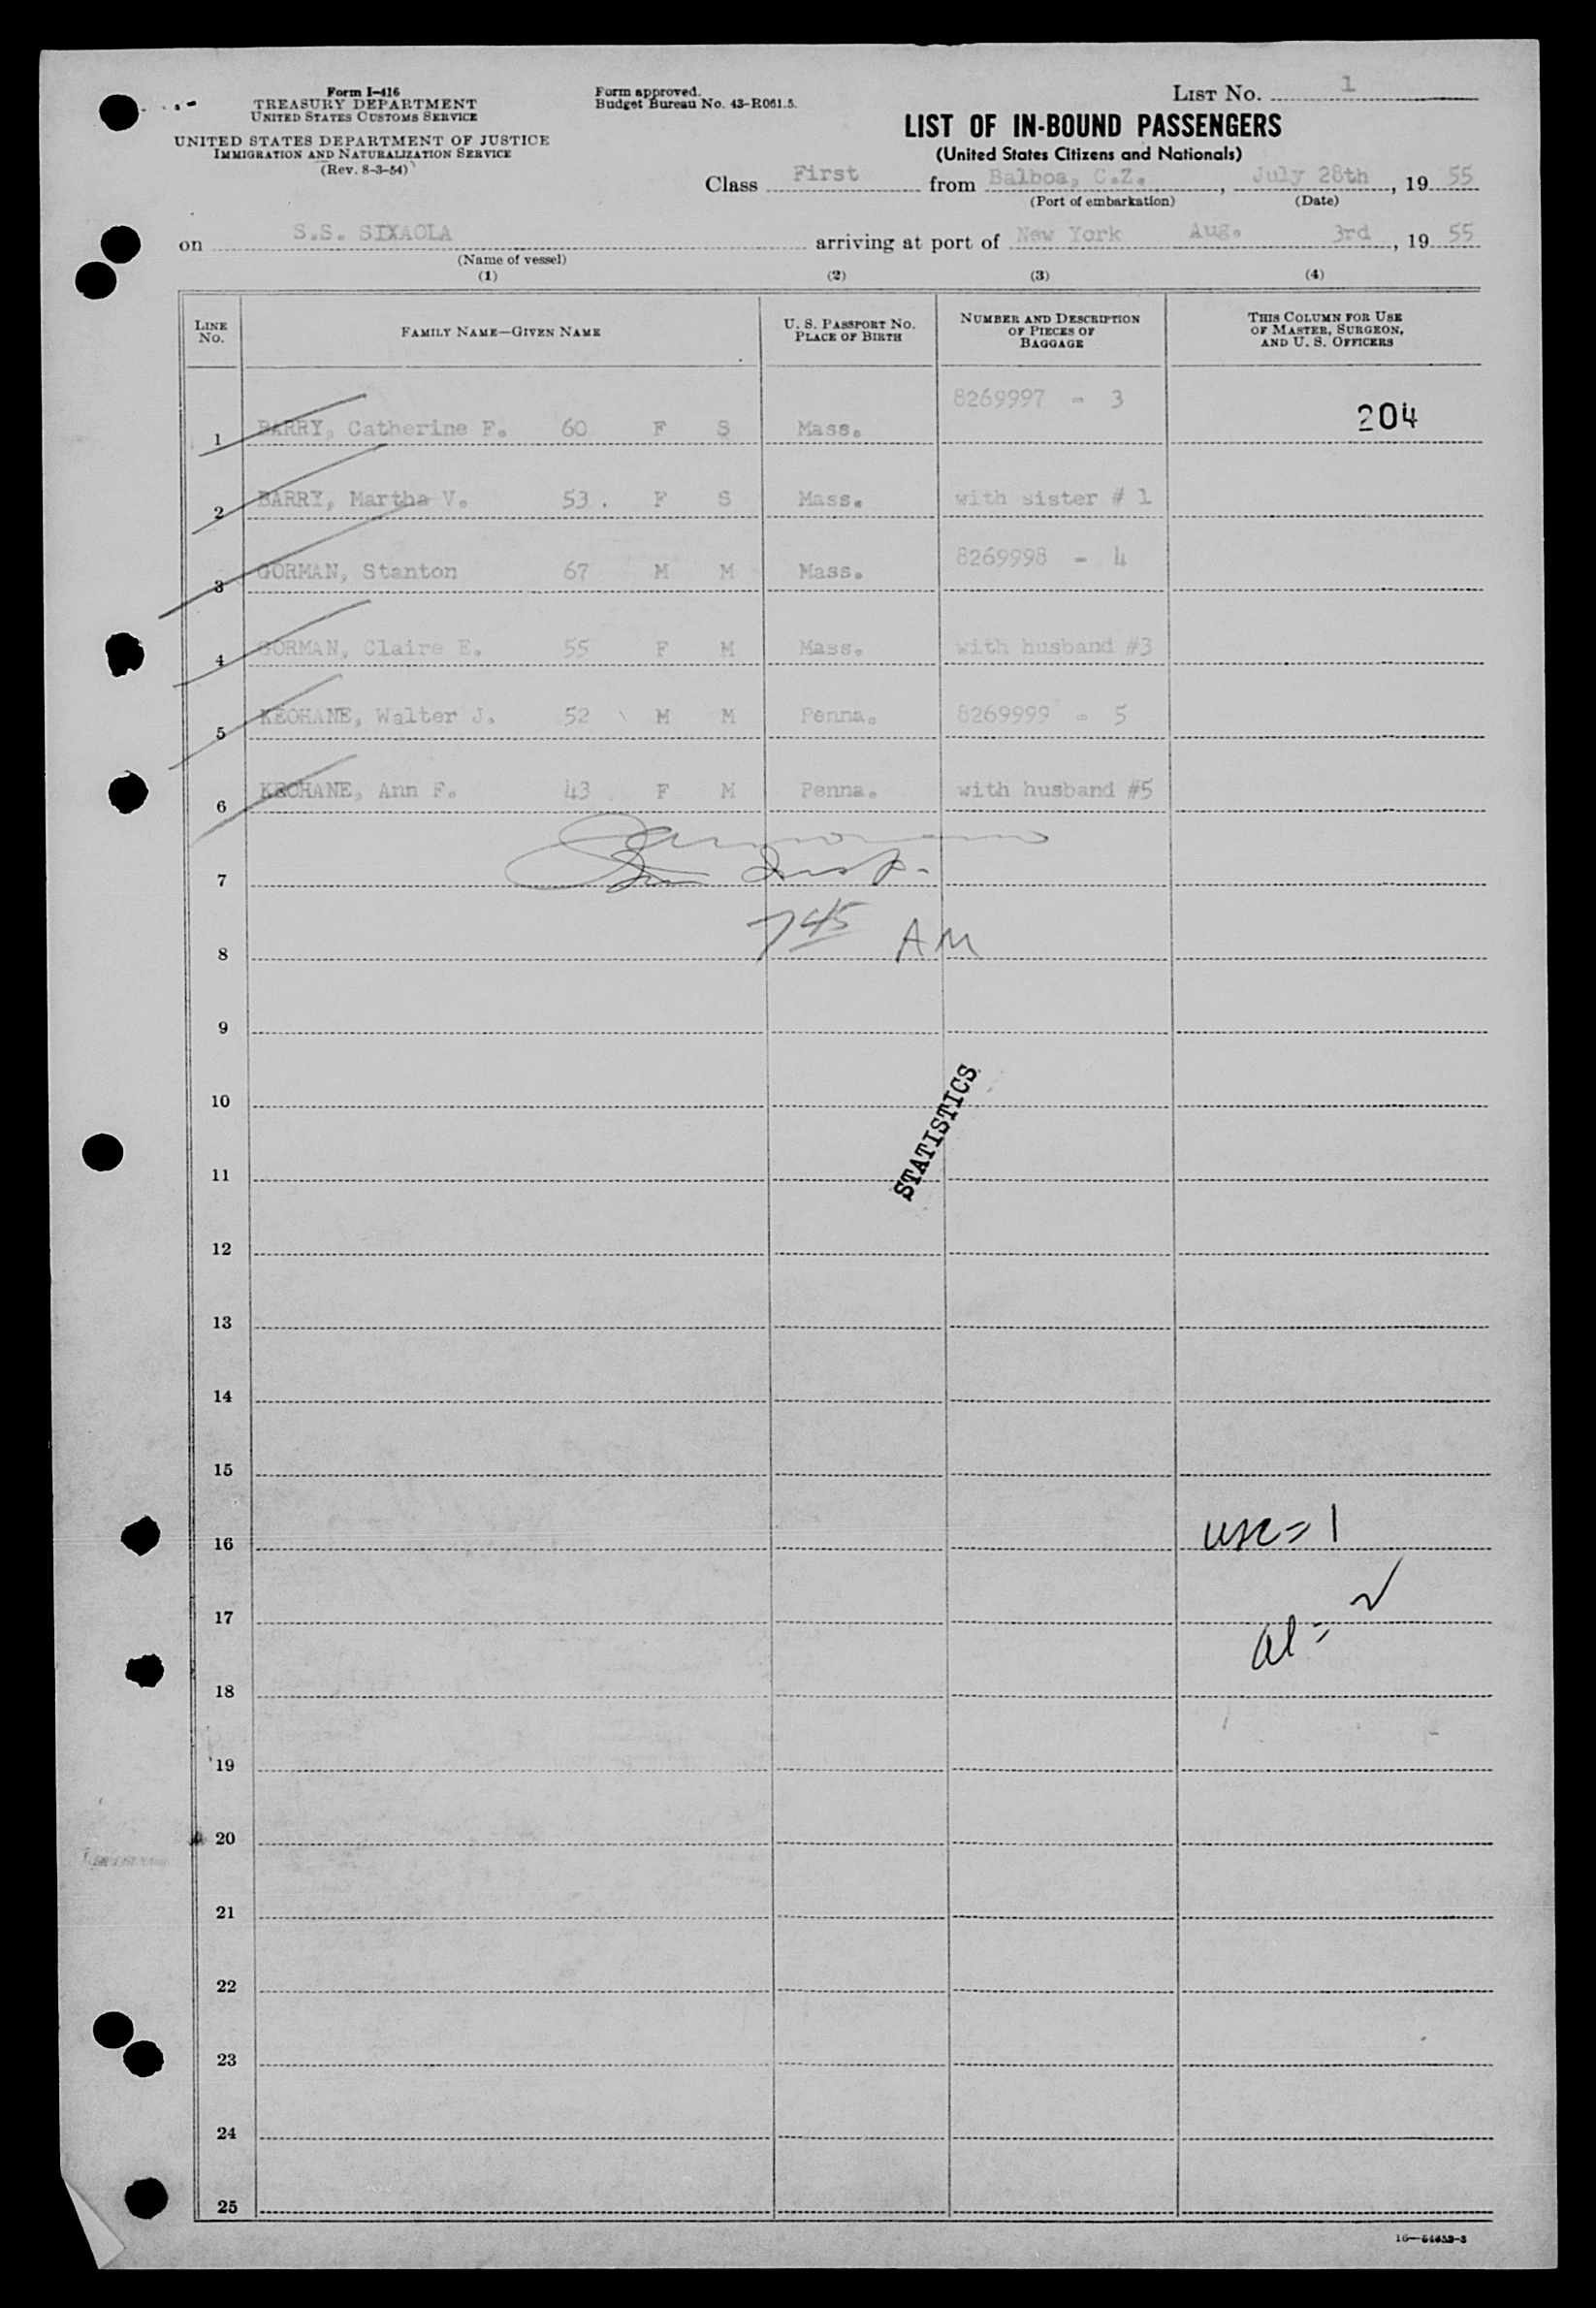 Form I-416
TREASURY DEPARTMENT
UNITED STATES CUSTOMS SERVICE
UNITED STATES DEPARTMENT OF JUSTICE
IMMIGRATION AND NATURALIZATION SERVICE
(Rev. 8-3-54)
Form approved.
Budget Bureau No. 43-R061.5.
LIST NO. 1
LIST OF IN-BOUND PASSENGERS
(United States Citizens and Nationals)
Class First from Balboa, C.Z., July 28th, 19 55
(Port of embarkation) (Date)
on S.S. SIXAOLA arriving at port of New York Aug. 3rd, 19 55
(Name of vessel)
(1) (2) (3) (4)
LINE NO. FAMILY NAME—GIVEN NAME U. S. PASSPORT NO. PLACE OF BIRTH NUMBER AND DESCRIPTION OF PIECES OF BAGGAGE THIS COLUMN FOR USE OF MASTER, SURGEON, AND U. S. OFFICERS
1 BARRY, Catherine F. 60 F S Mass. 8269997 - 3 204
2 BARRY, Martha V. 53 . F S Mass. with sister # 1
3 GORMAN, Stanton 67 M M Mass. 8269998 - 4
4 GORMAN, Claire E. 55 F M Mass. with husband #3
5 KEOHANE, Walter J. 52 M M Penna. 8269999 - 5
6 KEOHANE, Ann F. 43 F M Penna. with husband #5
7
8 7 45 AM
9
10
STATISTICS
11
12
13
14
15
16 usc = 1
17
al =
18
19
20
21
22
23
24
25